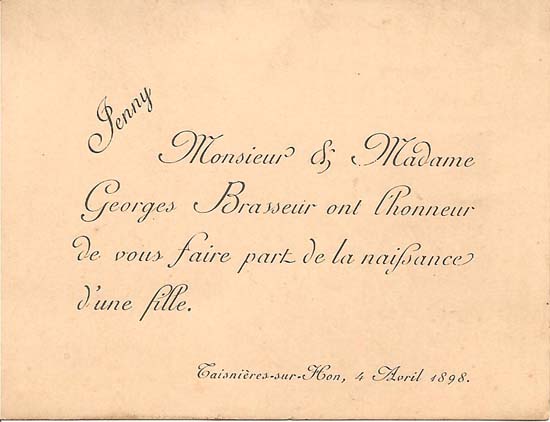 Jenny
Monsieur & Madame
Georges Brasseur ont l'honneur
de vous faire part de la naissance
d'une fille.
Taisnières-sur-Hon, 4 Avril 1898.